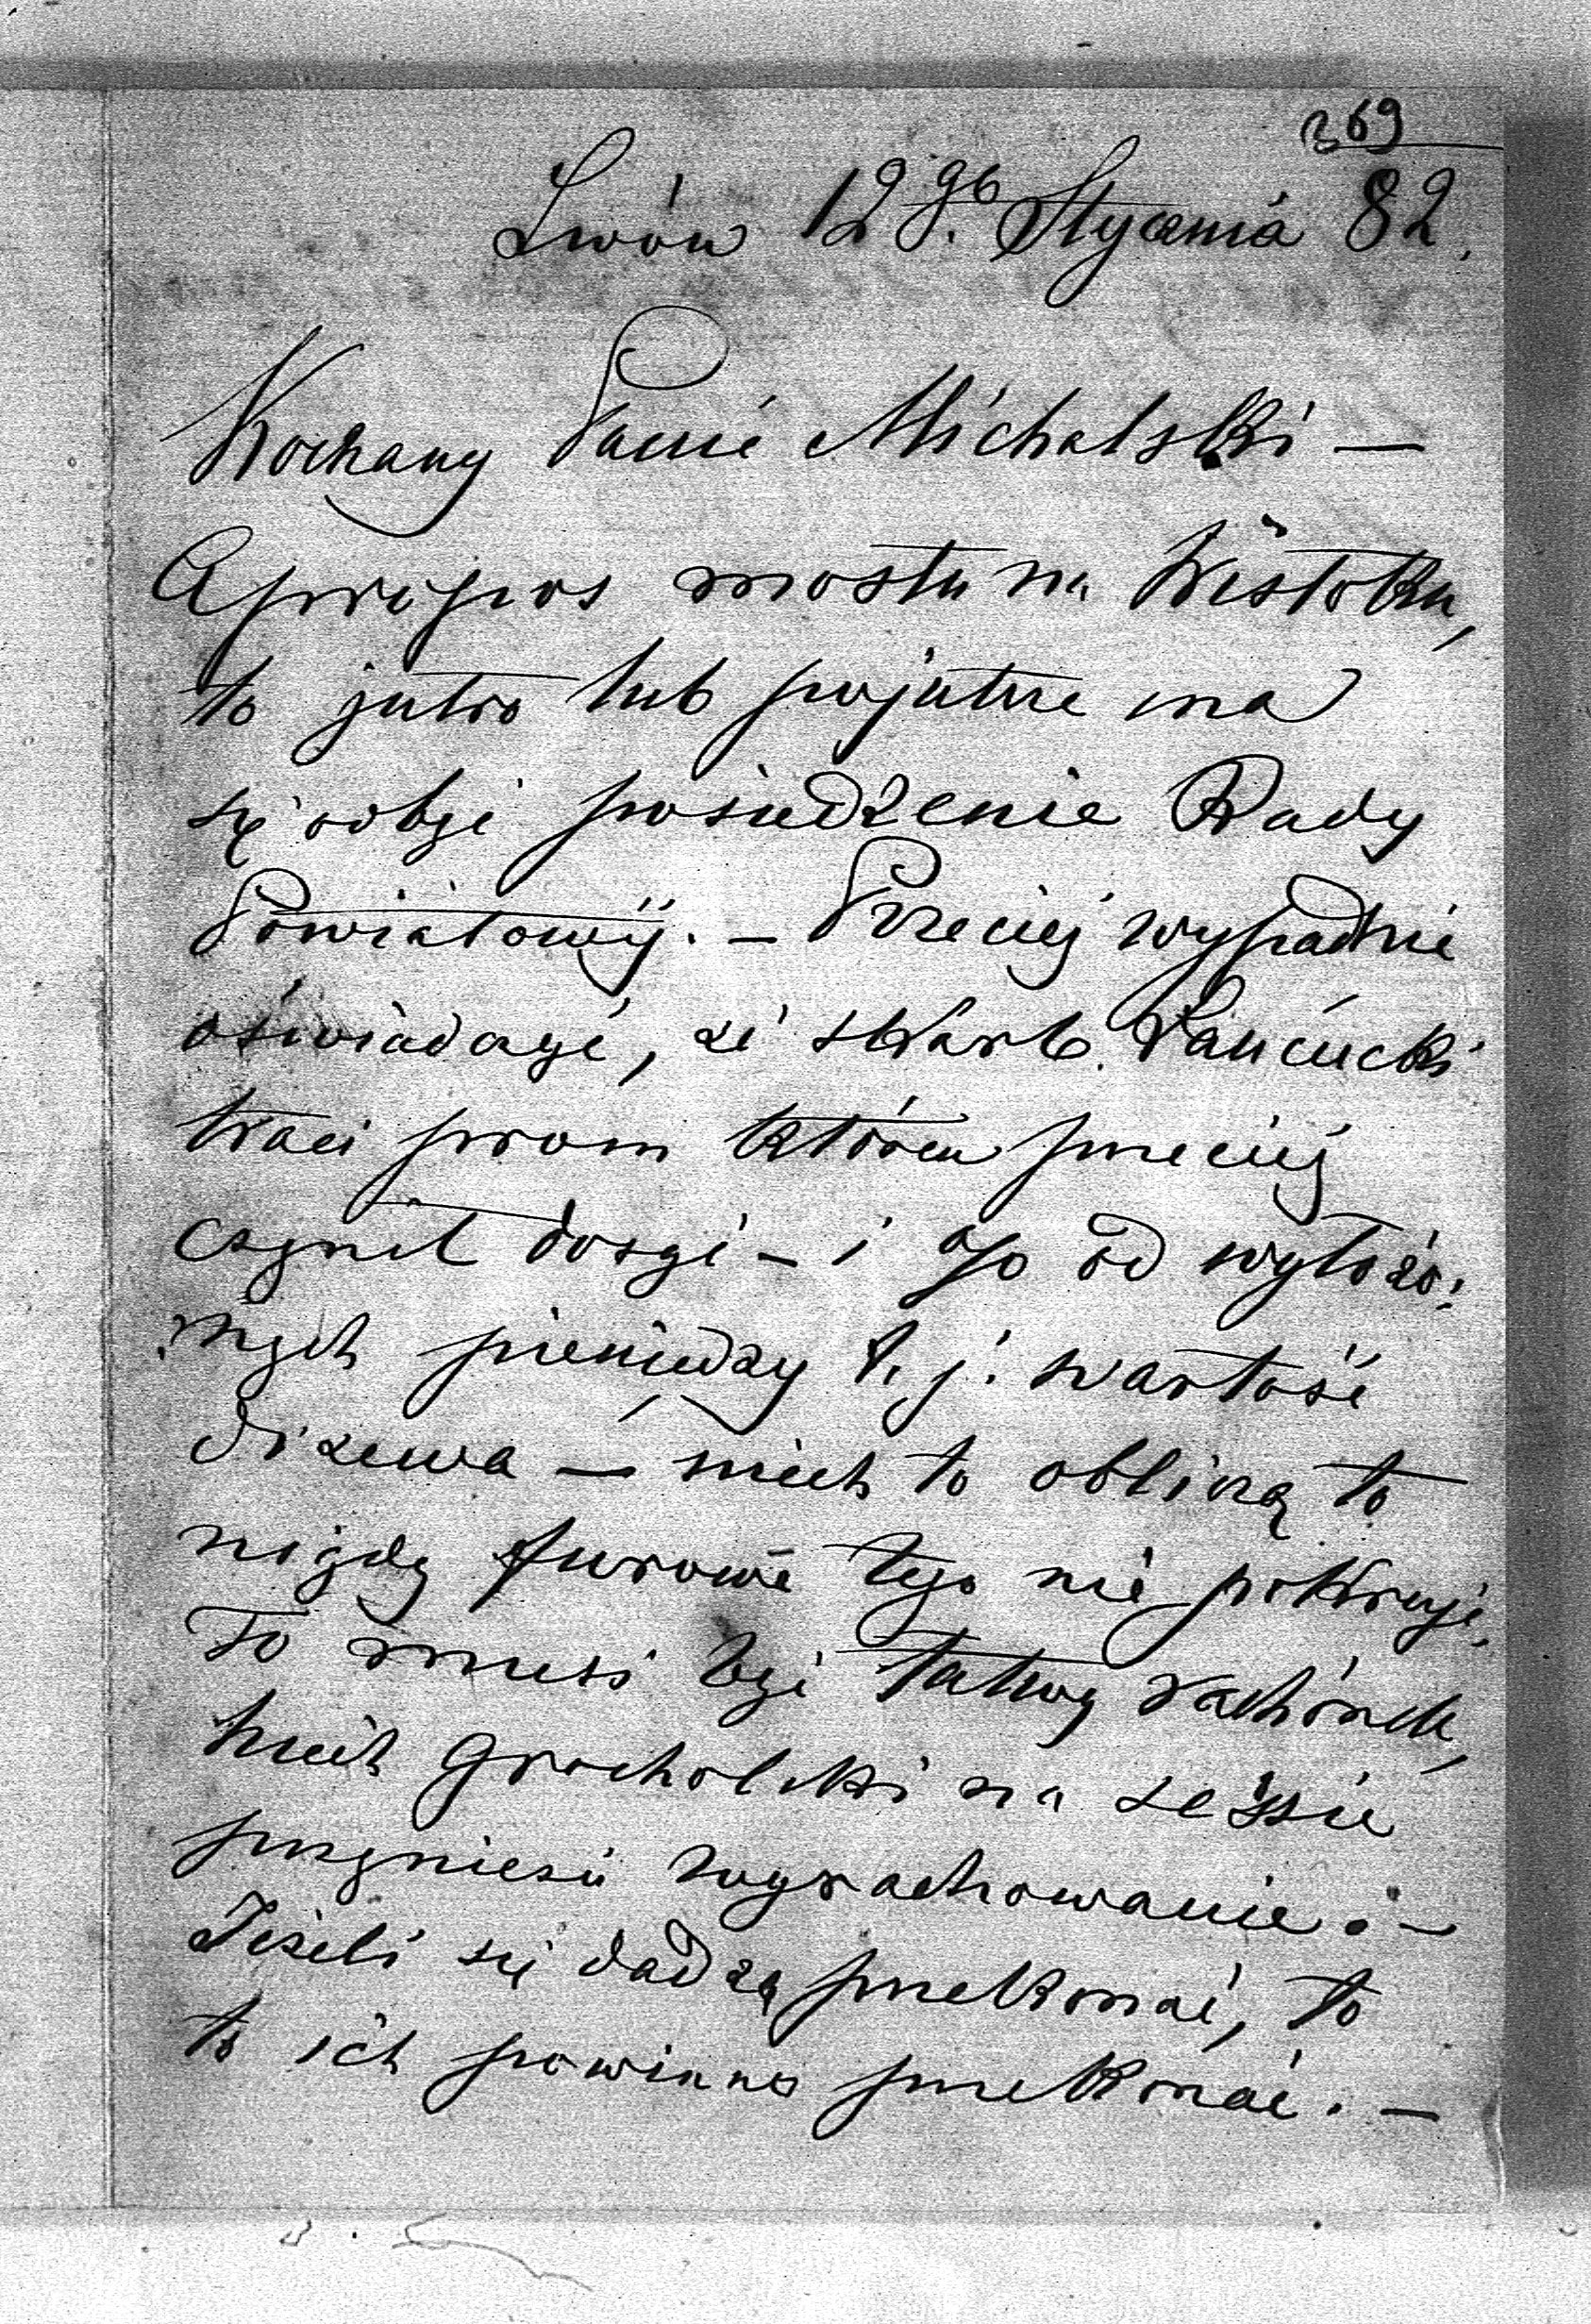 369
Lwów 12go. Stycznia 82.
Kochany Panie Michalski —
Apropos mostu na Wisłoku,
to jutro lub pojutrze ma
się odbyć posiedzenie Rady
Powiatowéj. — Przeciéj wypadnie
oświadczyć, że skarb. Łańcucki
traci prom któren przeciéj
czynił dosyć – i % od wyłożo:
:nych pieniędzy t. j. wartość
drzewa — niech to obliczą to
nigdy furowe tego nie pokryje.
To musi być łatwy rachónek,
niech Grocholski na sessie
przyniesie wyrachowanie. –
Jeżeli się dadzą przekonać, to
to ich powinno przekonać. —